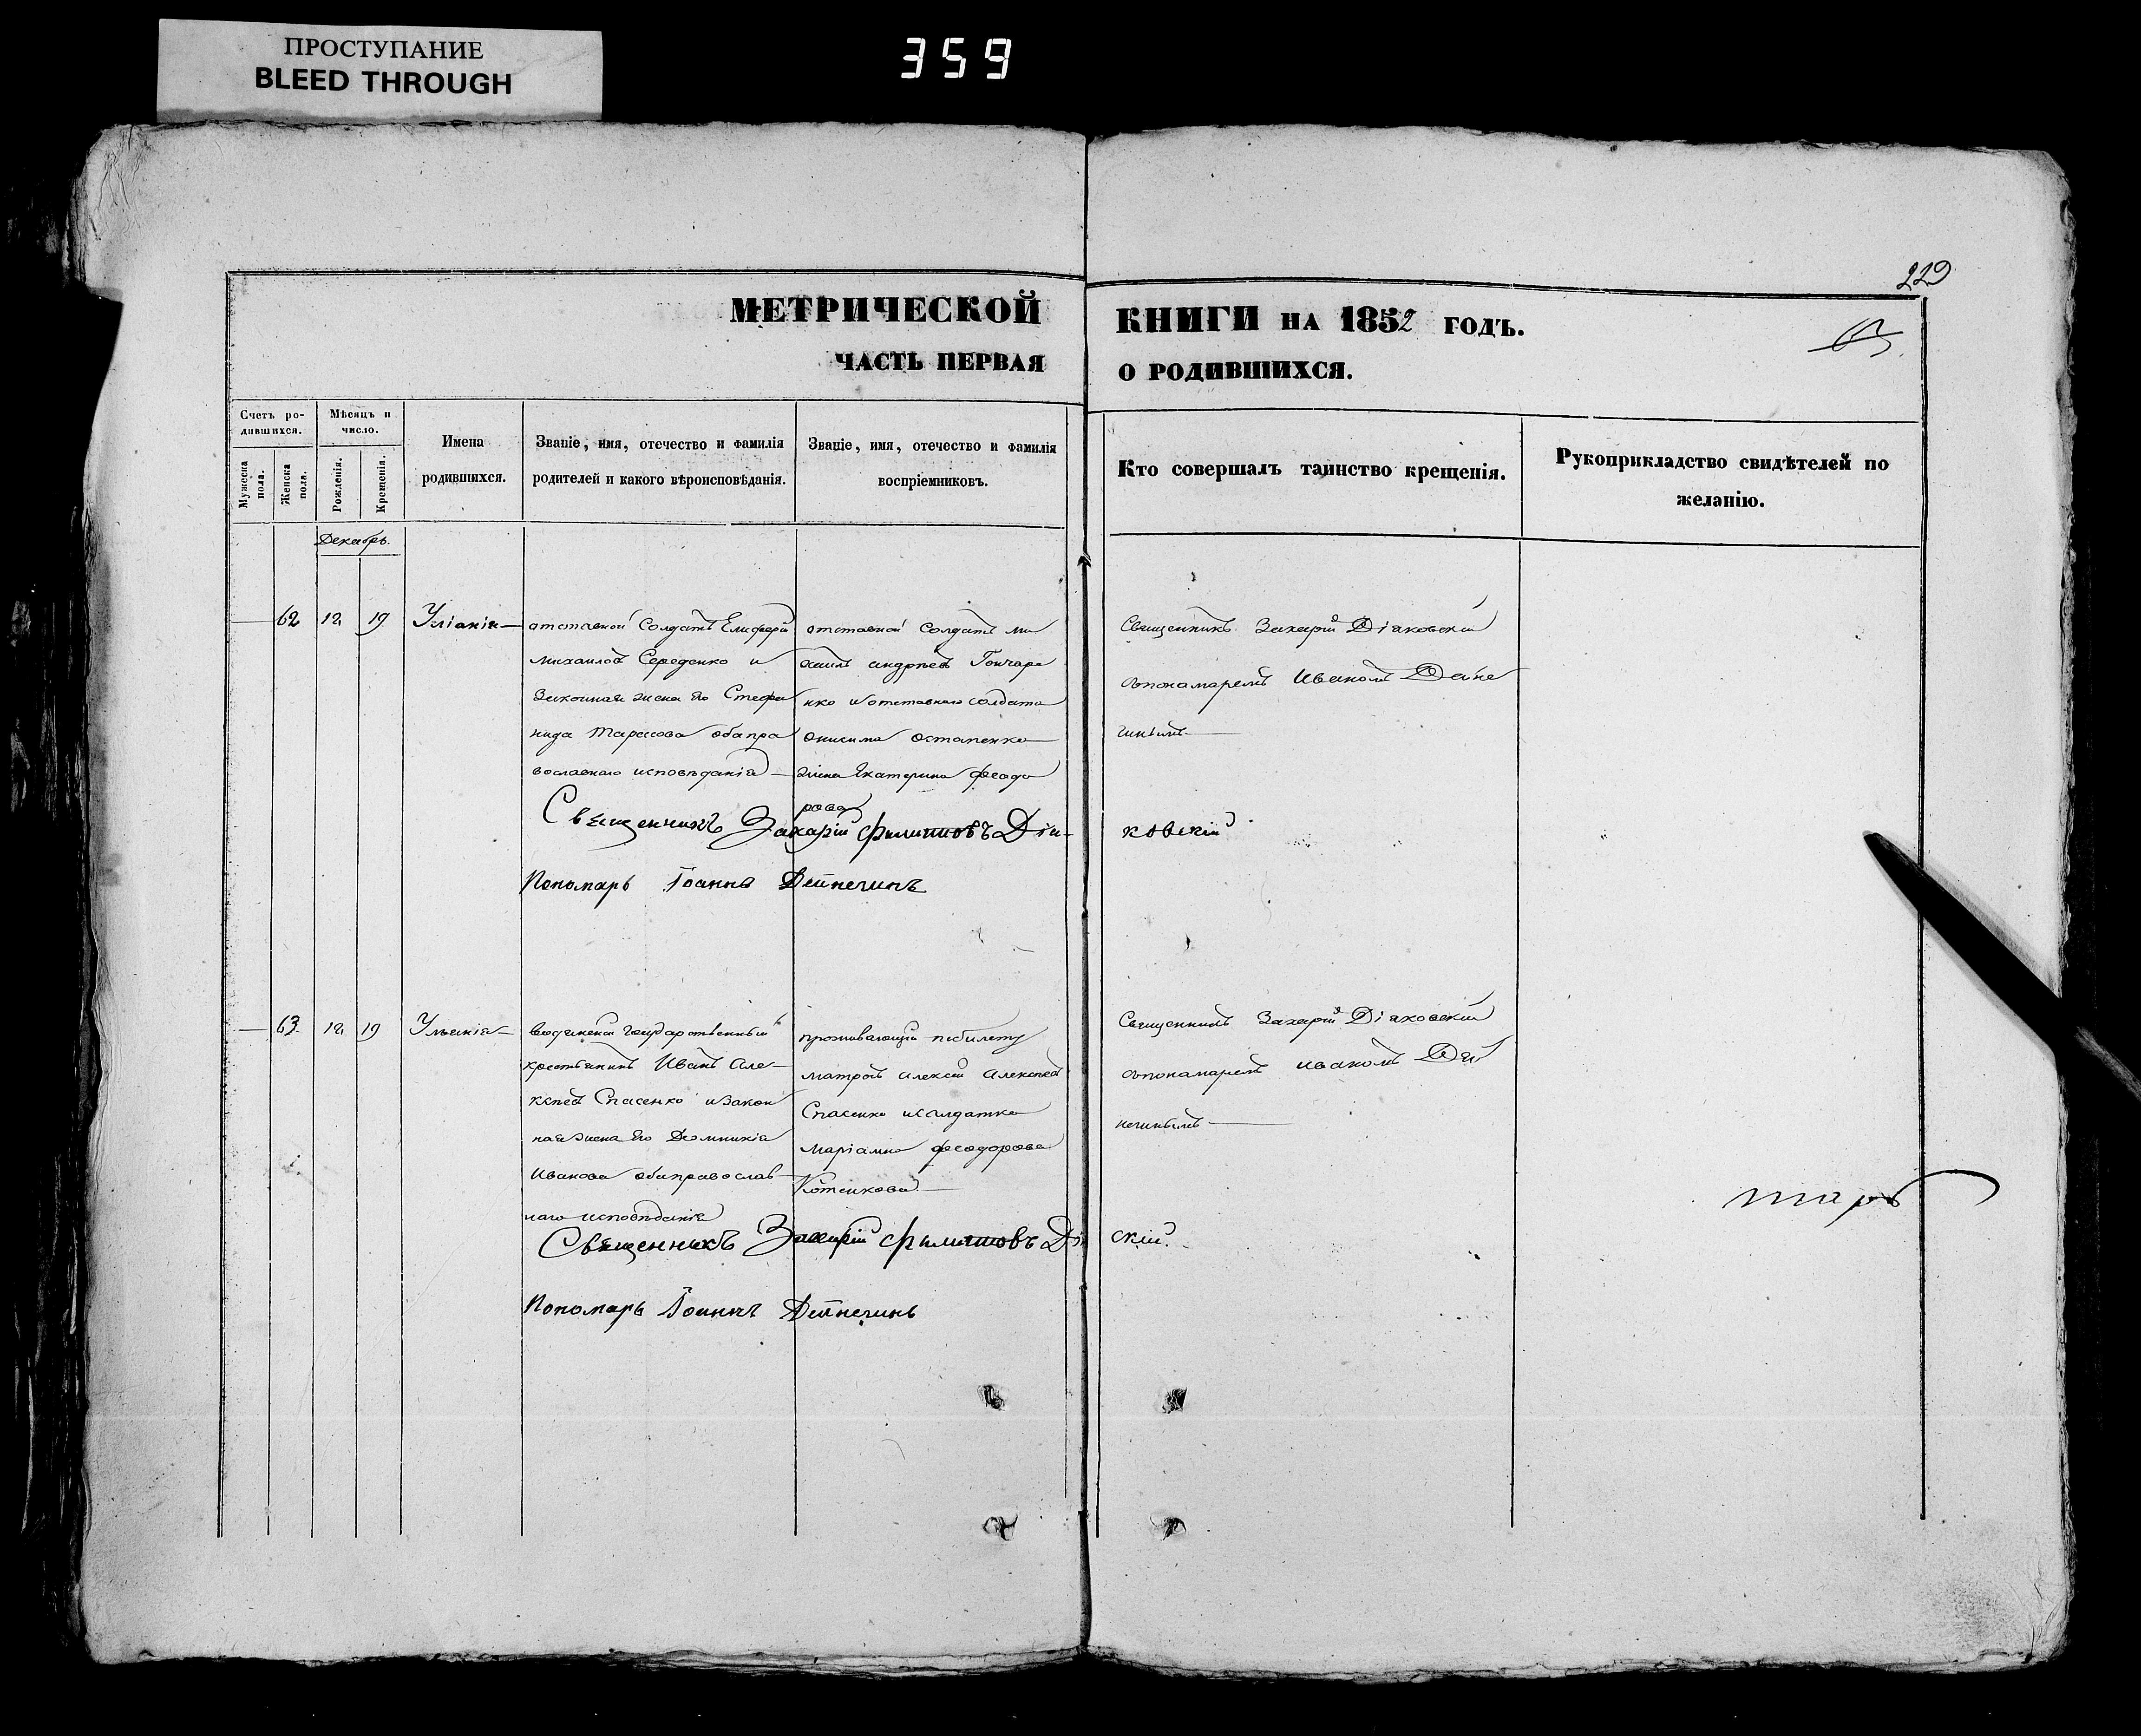 ПРОСТУПАНИЕ
BLEED THROUGH
359
229
МЕТРИЧЕСКОЙ КНИГИ НА 1852 ГОДЪ.
ЧАСТЬ ПЕРВАЯ О РОДИВШИХСЯ.
Счетъ ро-
дившихся.
Мужеска пола.
Женска пола.
Мѣсяцъ и
число.
Рожденія.
Крещенія.
Имена
родившихся.
Званіе, имя, отечество и фамилія
родителей и какого вѣроисповѣданія.
Званіе, имя, отечество и фамилія
воспріемниковъ.
Кто совершалъ таинство крещенія.
Рукоприкладство свидѣтелей по
желанію.
Декабрь.
62 12 19 Уліанія
отставной Солдатъ Елиферій
Михаиловъ Середенко и
Законная жена его Стефа
нида Тарасова оба пра
вославнаго исповѣданія
отставной Солдатъ Ми
хаилъ Андрѣевъ Гончаре
нко и отставнаго солдата
Онисима Остапенка
жена Екатерина Феодо
рова
Священникъ Захарій Діяковскій
съ пономаремъ Иваномъ Дейне
Священникъ Захарій Филиповъ Дія-
ковскій
Пономарь Іоаннъ Дейнечинъ
63 12 19 Ульянія
государственный
крестьянинъ Иванъ Але-
ксѣевъ Спасенко и Закон
ная жена Его Домникія
Иванова оба православ
наго исповѣданія
проживающій по билету
матросъ Алексѣй Алексѣевъ
Спасенко и солдатка
Маріамна Феодорова
Котенкова
Священникъ Захарій Діяковскій
съ пономаремъ Иваномъ Дей
Священникъ Захарій Филиповъ Ді
скій.
Пономарь Іоаннъ Дейнечинъ